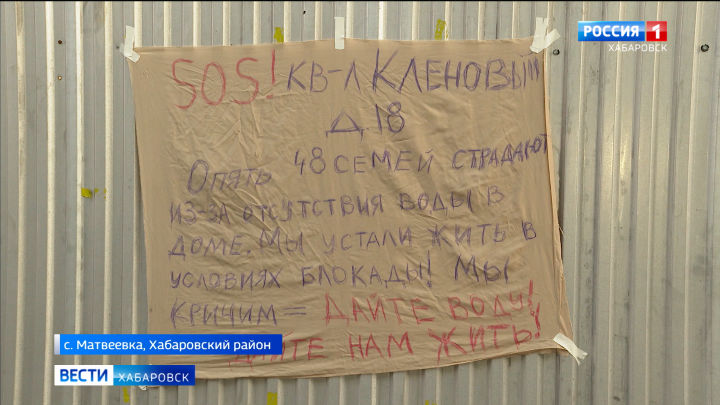 РОССИЯ 1
ХАБАРОВСК
SOS! КВ-Л КЛЕНОВЫЙ
Д 18
ОПЯТЬ 48 СЕМЕЙ СТРАДАЮТ
ИЗ-ЗА ОТСУТСТВИЯ ВОДЫ В
ДОМЕ. МЫ УСТАЛИ ЖИТЬ В
УСЛОВИЯХ БЛОКАДЫ! МЫ
КРИЧИМ = ДАЙТЕ ВОДУ!
ДАЙТЕ НАМ ЖИТЬ!
с. Матвеевка, Хабаровский район
ВЕСТИ ХАБАРОВСК